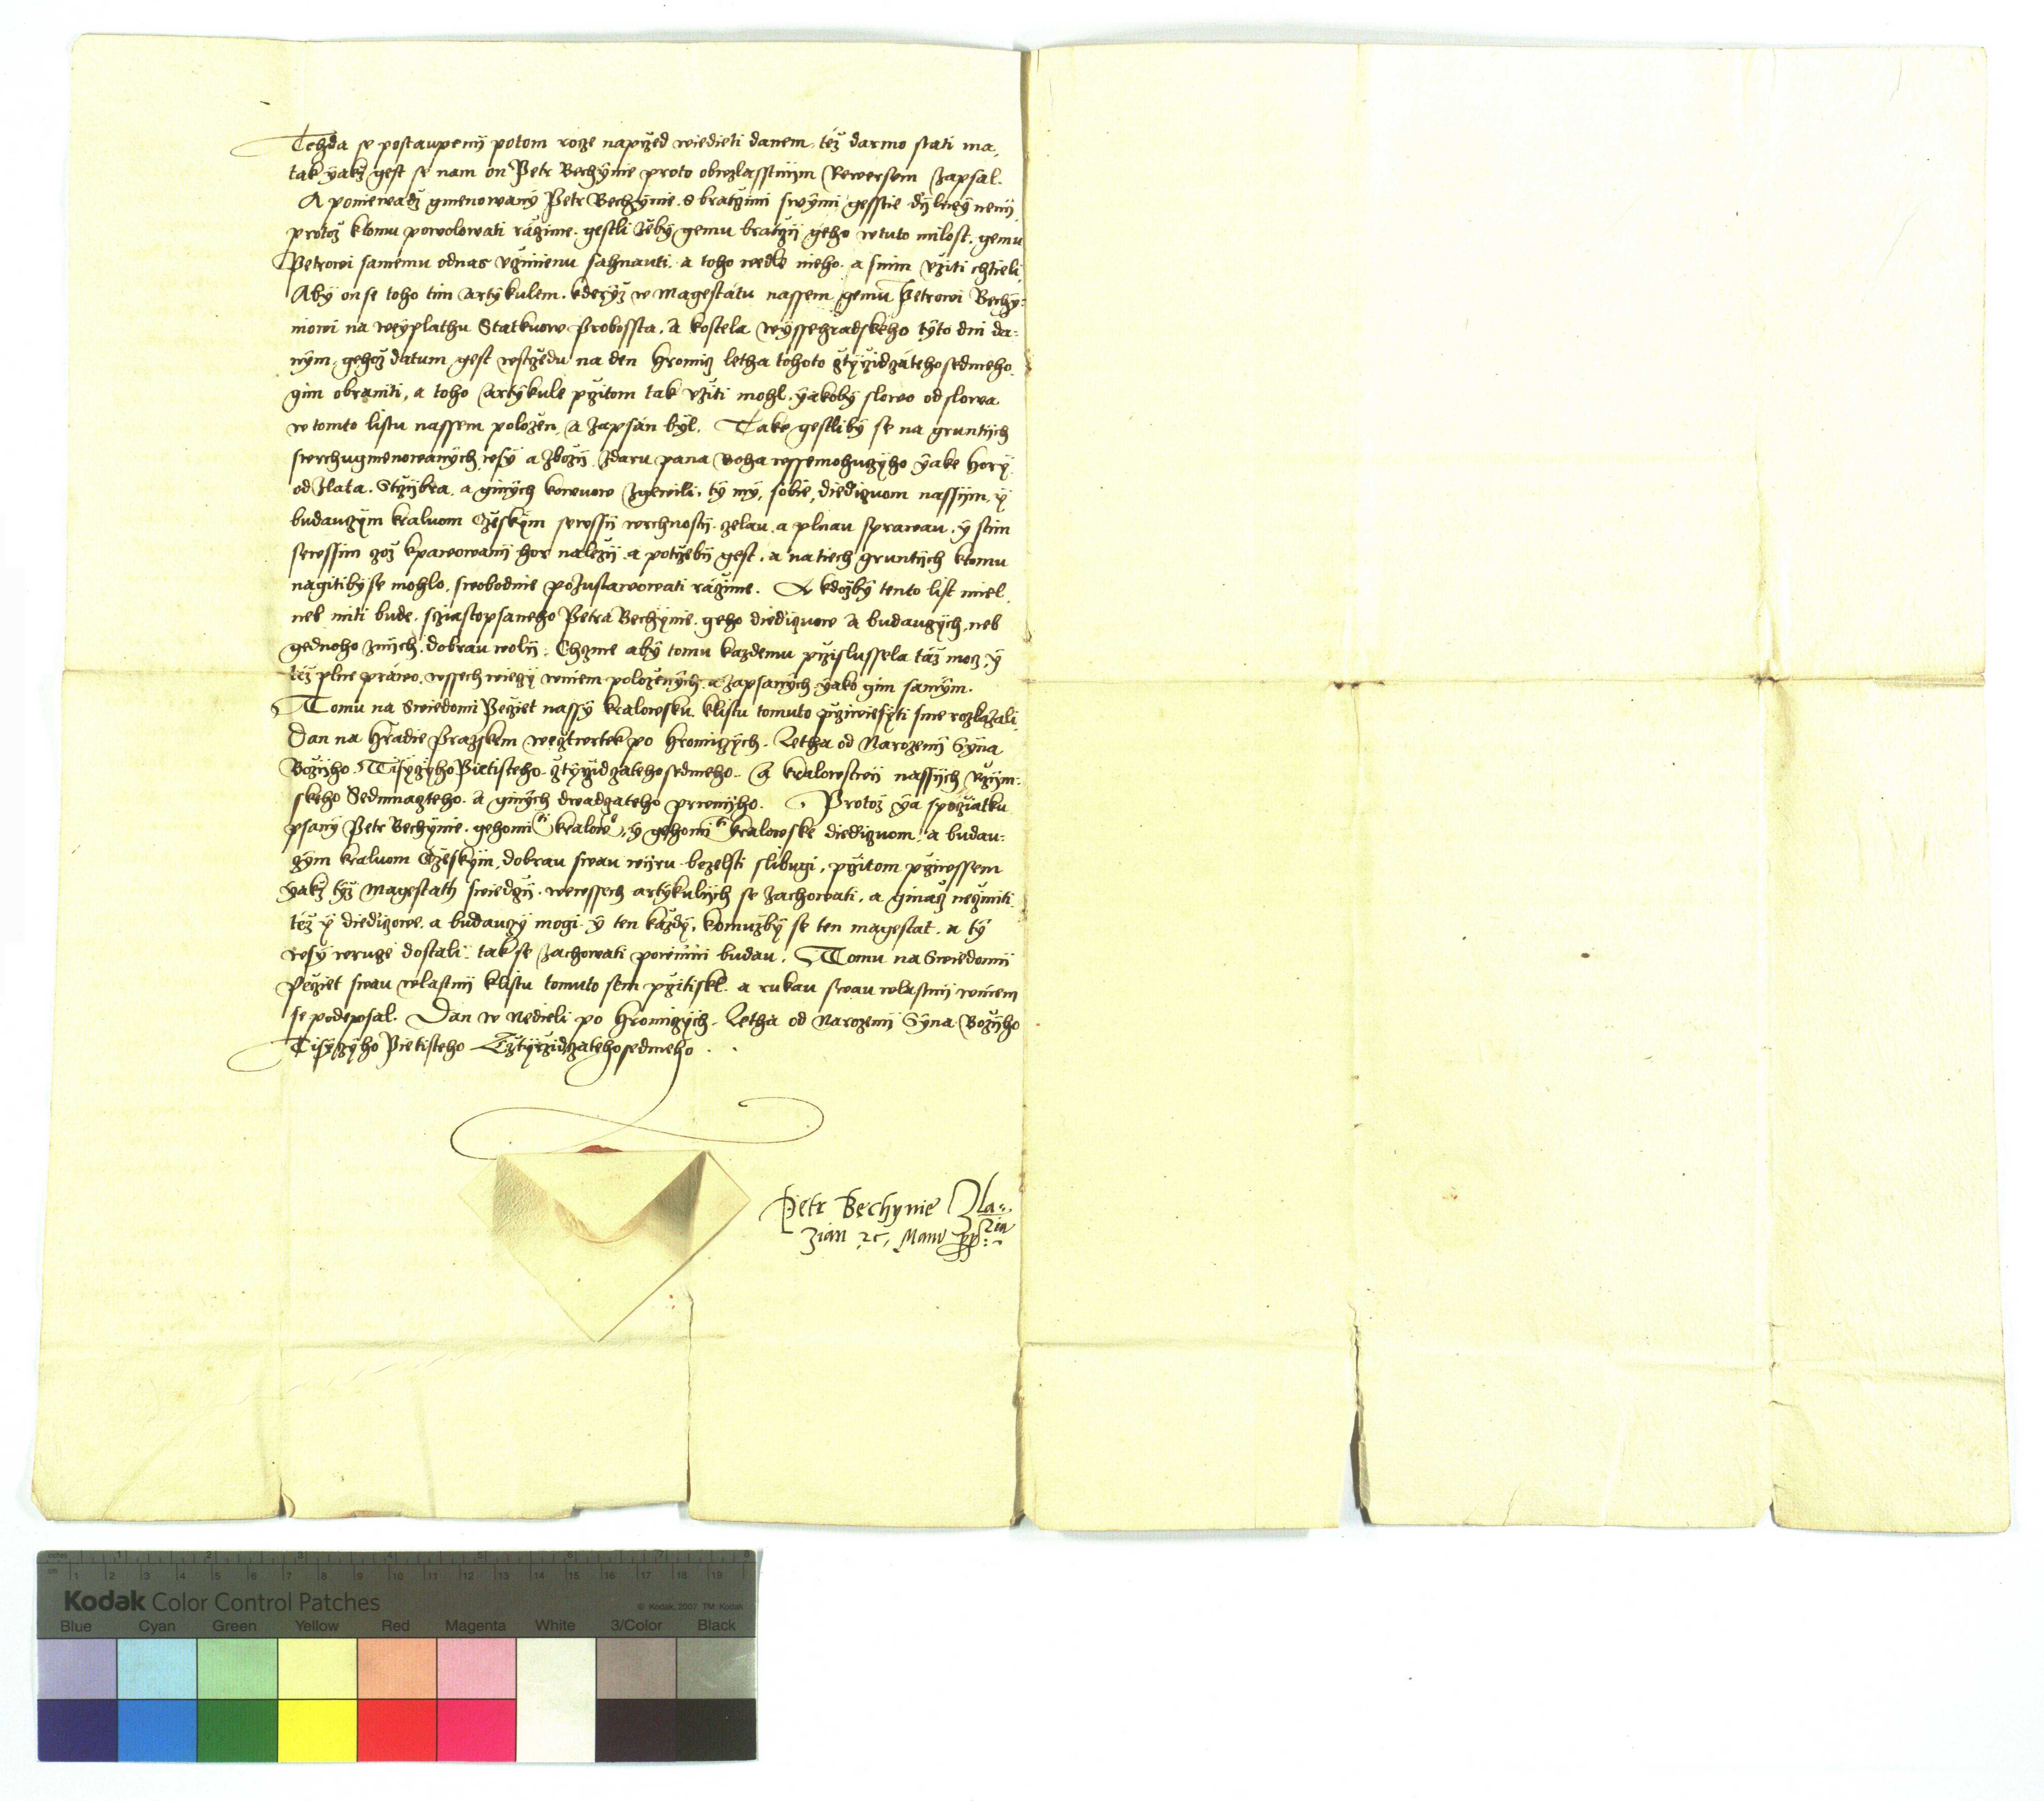 Tehda se postaupenij potom roze naprzed wiedieti danem, téz darmo stati ma,
tak yakz gest se nam on Petr Bechynie proto obwzlasstnijm Rewersem Zapsal.
A poniewadz gmenowaný Petr Bechynie. S bratrzimi swými gesstie dijlnij nenij,
protoz ktomu powolowati ráczime. gestli žeby gemu bratrzij geho wtuto milost. gemu
Petrowi samému odnas vczinienu sahnauti. a toho wedle nieho. a snim vziti chtieli,
Aby onse toho tim Artykulem. kderýz w Magestátu nassem gemu Petrowi Bechy:
niowi na weyplathu Statkuow Probossta. A kostela Wyssehradského tyto dni da:
ným. gehoz datum gest wstrzedu na den hromicz letha tohoto cztyrzidczátehosedmeho.
gim obraniti, a toho Artykule przitom tak vziti mohl. yakoby slowo od slowa
w tomto listu nassem polozen, a Zapsán byl. Take gestliby se na gruntijch
swrchugmenowaných wsy a zbozij zdaru pana Boha wssemohuczyho yake hory
od zlata. Strzijbra. a giných kowuow zgewili. ty my, sobie, diediczuom nassijm, y
budauczým kraluom Czeským sewssij wrchnostij. czelau a plnau sprawau. y stim
sewssim czoz kpawowanij hor nalezij a potrzebij gest. a na tiech gruntijch ktomu
nagitibyse mohlo, swobodnie pozustawowati rácžime. A kdožby tento list miel,
neb miti bude. sczastopsaneho Petra Bechynie. geho diediczuow a budauczých, neb
gednoho znijch. dobrau wolij. Chczme aby tomu kazdemu przislussela táz mocz, y
téz plne práwo. wssech wieczý wniem polozených. a zapsaných yako gim samým.
Tomu na Swiedomi Peczet nassy kralowsku. klistu tomuto przwiesyti sme rozkazali,
Dan na Hradie Prazském wecztwrtek po hromiczých. Letha od Narozenij Syna
Bozijho. Tisyczyho Pietisteho. cztyrzidczatehosedmeho. A kralowstwij nassijch Rzijm:
ského Sedmnaczteho. A giných dwadczateho prwnijho. Protoz ya spoczatku
psaný Petr Bechynie. gehomi kralow, y gehomi kralowske diediczuom, a budau:
czým kraluom Czeským, dobrau swau wijru bezelsti slibugi. przitom przewssem
yakz týz magestath swiedczij. wewssech artykulijch se zachowati, a ginacz necziniti
téz y diediczowe. a budauczy mogi. y ten kazdý, komuzby se ten magestat. a ty
wsy wruce dostali. tak se zachowati powinni budau. Tomu na Swiedomij
Peczet swau wlastnij klistu tomuto sem przitiskl. a rukau swau wlastnij wniem
se podepsal. Dan w Nedieli po hromiczých. Letha od Narozenij Syna Bozijho
Tisyczyho Pietisteho Cztyrzidczatehosedmeho.
Petr Bechynie Zla:
zian 2c, Manu pp:ria
Kodak Color Control Patches
© Kodak, 2007 TM: Kodak
Blue Cyan Green Yellow Red Magenta White 3/Color Black